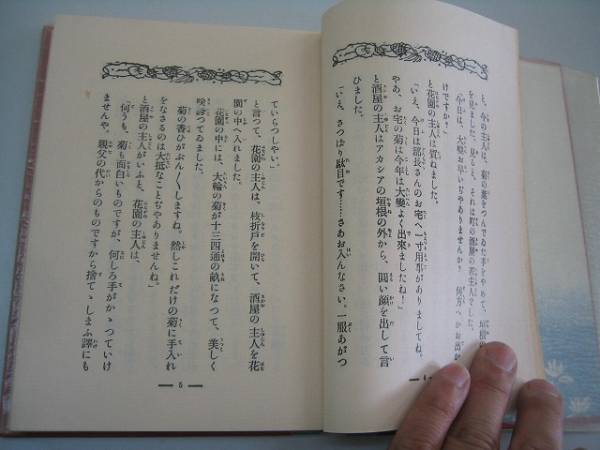 と、今の主人は、菊の葉をつんでゐた手をやめて、垣根
を見ました。見ると、それは町の酒屋の主人でした。
「今日は、大變お早いぢやありませんか？ 何方へかお出
けですか？」
と花園の主人は質ねました。
「いえ、今日は部長さんのお宅へ一寸用事がありましてね。
やあ、お宅の菊は今年は大變よく出來ましたね！」
と酒屋の主人はアカシアの垣根の外から、圓い顏を出して言
ひました。
「いえ、さつぱり駄目です……さあお入んなさい。一服あがつ
4
ていらつしやい。」
と言つて、花園の主人は、枝折戸を開いて、酒屋の主人を花
園の中へ入れました。
花園の中には、大輪の菊が十三四通の畝になつて、美しく
咲誇つてゐました。
「菊の香ひがぷん〳〵しますね。然しこれだけの菊に手入れ
をなさるのは大抵なことぢやありませんね。」
と酒屋の主人がいふと、花園の主人は、
「何うも、菊も面白いものですが、何しろ手がかゝつていけ
ませんや。親父の代からのものですから捨てゝしまふ譯にも
5